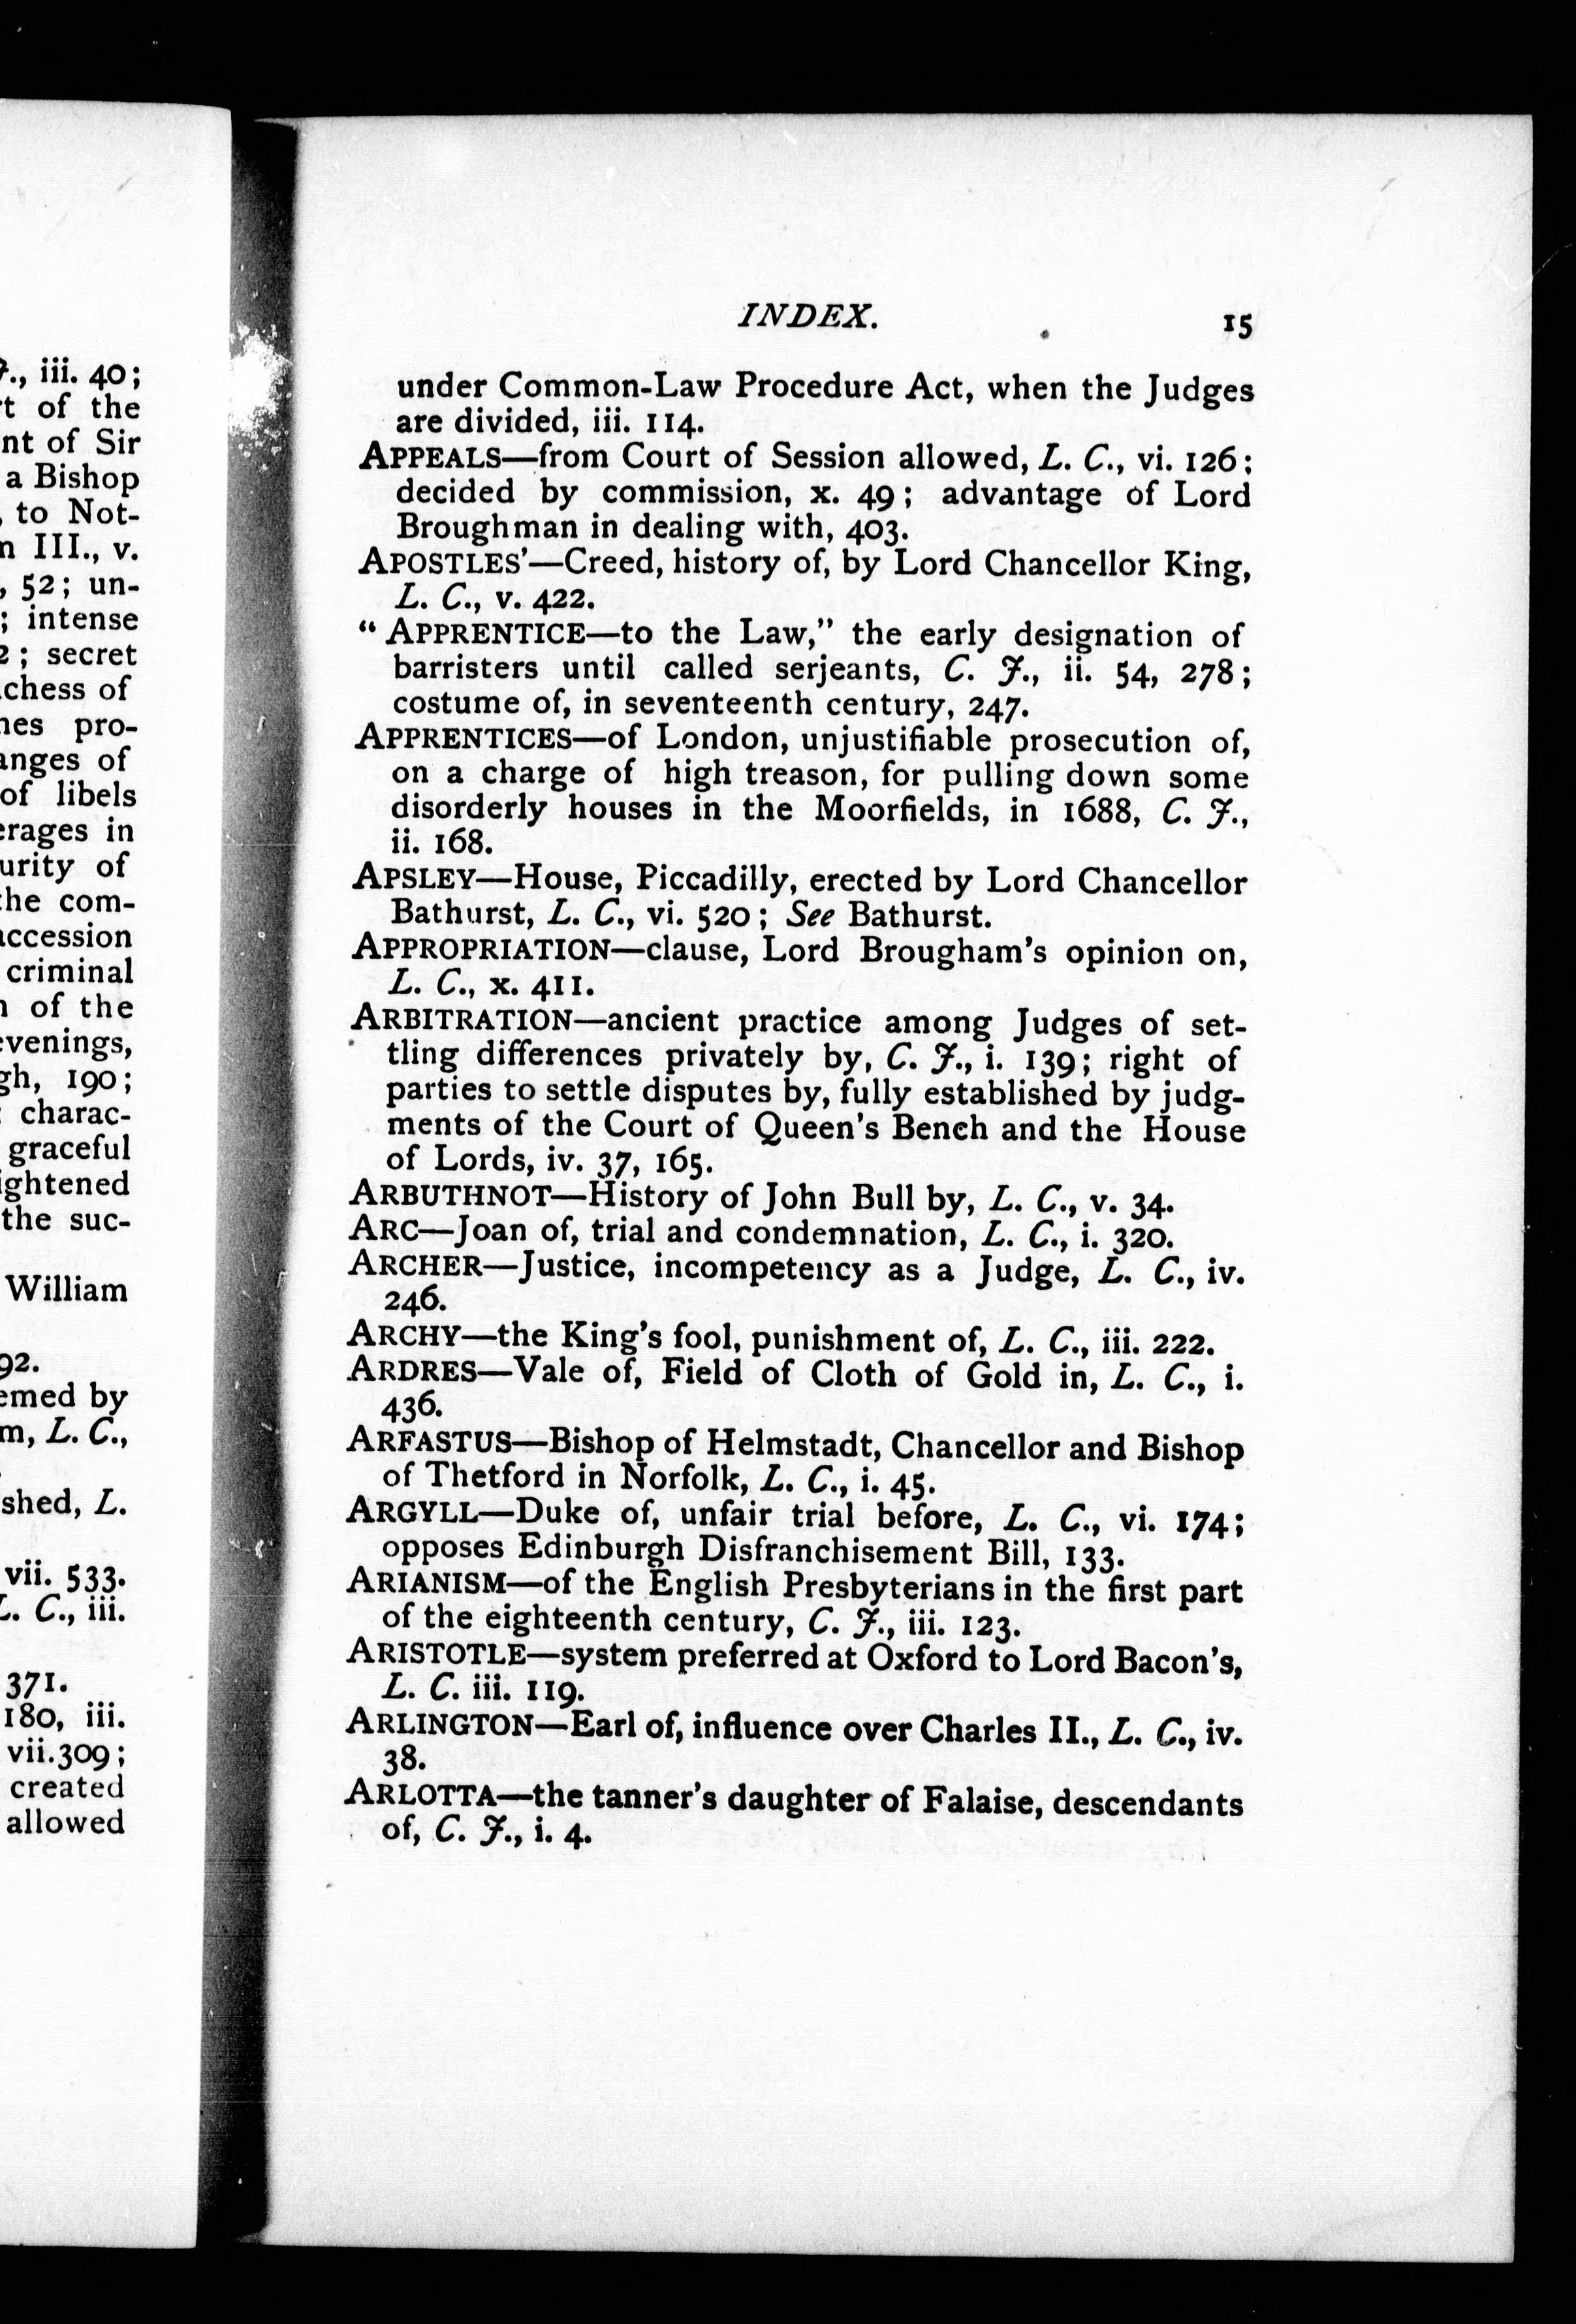 ., iii. 40;
t of the
nt of Sir
a Bishop
, to Not-
n III., v.
, 52; un-
; intense
2; secret
chess of
nes pro-
anges of
of libels
erages in
urity of
the com-
accession
criminal
n of the
evenings,
gh, 190;
charac-
graceful
ightened
the suc-
William
92.
emed by
m, L. C.,
shed, L.
vii. 533.
L. C., iii.
371.
180, iii.
vii.309;
created
allowed
INDEX. 15
under Common-Law Procedure Act, when the Judges
are divided, iii. 114.
APPEALS—from Court of Session allowed, L. C., vi. 126;
decided by commission, x. 49; advantage of Lord
Broughman in dealing with, 403.
APOSTLES'—Creed, history of, by Lord Chancellor King,
L. C., v. 422.
"APPRENTICE—to the Law," the early designation of
barristers until called serjeants, C. J., ii. 54, 278;
costume of, in seventeenth century, 247.
APPRENTICES—of London, unjustifiable prosecution of,
on a charge of high treason, for pulling down some
disorderly houses in the Moorfields, in 1688, C. J.,
ii. 168.
APSLEY—House, Piccadilly, erected by Lord Chancellor
Bathurst, L. C., vi. 520; See Bathurst.
APPROPRIATION—clause, Lord Brougham's opinion on,
L. C., x. 411.
ARBITRATION—ancient practice among Judges of set-
tling differences privately by, C. J., i. 139; right of
parties to settle disputes by, fully established by judg-
ments of the Court of Queen's Bench and the House
of Lords, iv. 37, 165.
ARBUTHNOT—History of John Bull by, L. C., v. 34.
ARC—Joan of, trial and condemnation, L. C., i. 320.
ARCHER—Justice, incompetency as a Judge, L. C., iv.
246.
ARCHY—the King's fool, punishment of, L. C., iii. 222.
ARDRES—Vale of, Field of Cloth of Gold in, L. C., i.
436.
ARFASTUS—Bishop of Helmstadt, Chancellor and Bishop
of Thetford in Norfolk, L. C., i. 45.
ARGYLL—Duke of, unfair trial before, L. C., vi. 174;
opposes Edinburgh Disfranchisement Bill, 133.
ARIANISM—of the English Presbyterians in the first part
of the eighteenth century, C. J., iii. 123.
ARISTOTLE—system preferred at Oxford to Lord Bacon's,
L. C. iii. 119.
ARLINGTON—Earl of, influence over Charles II., L. C., iv.
38.
ARLOTTA—the tanner's daughter of Falaise, descendants
of, C. J., i. 4.